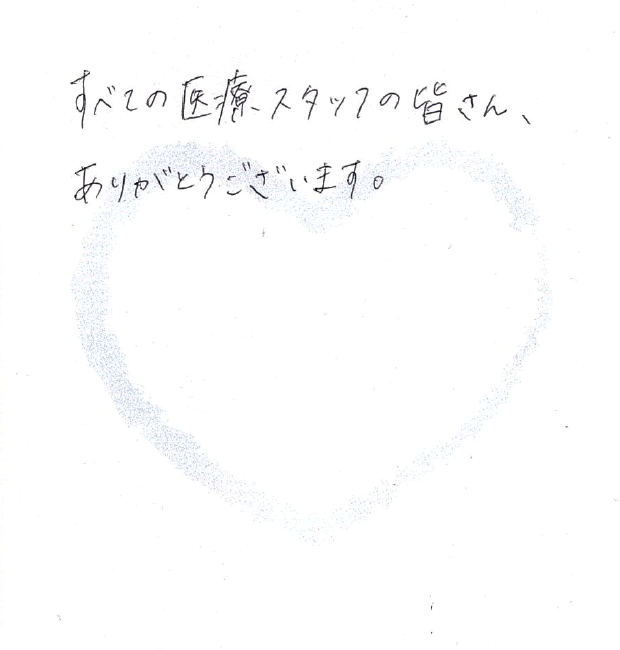 すべての医療スタッフの皆さん、
ありがとうございます。